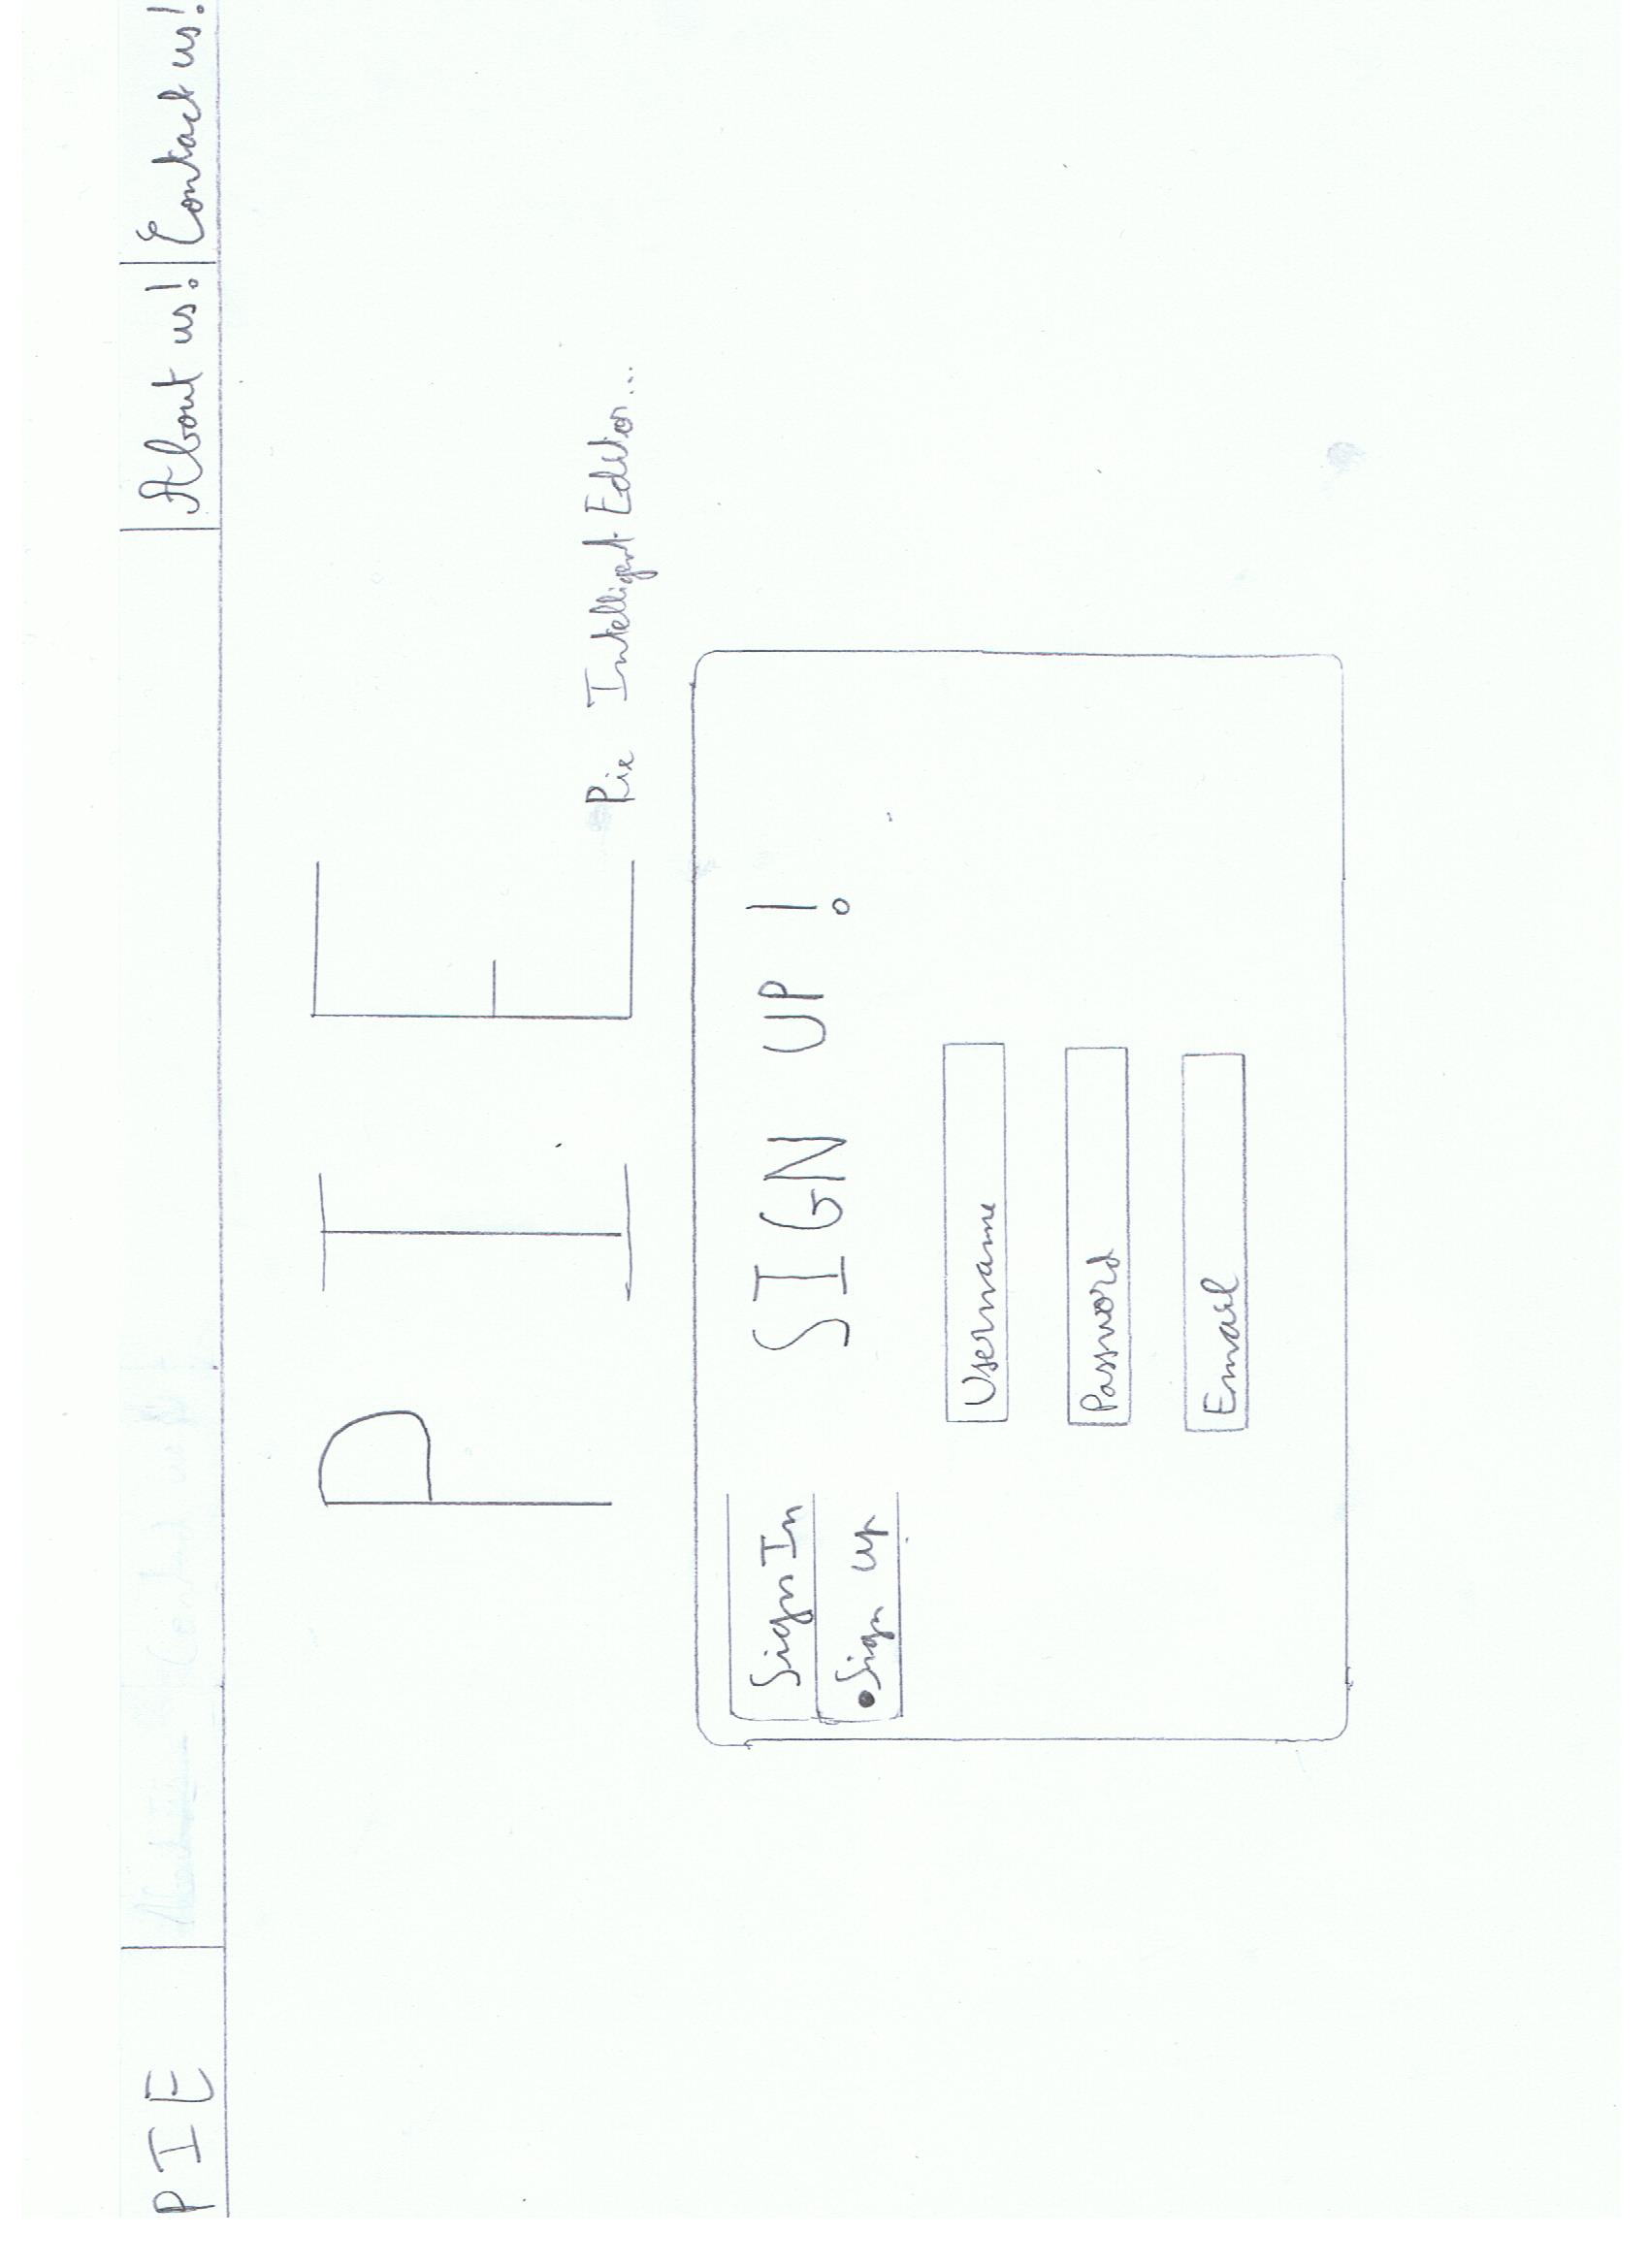 PIE About us! Contact us!
PIE
Pie Intelligent Editor...
Sign In
SIGN UP!
•Sign up
Username
Password
Email